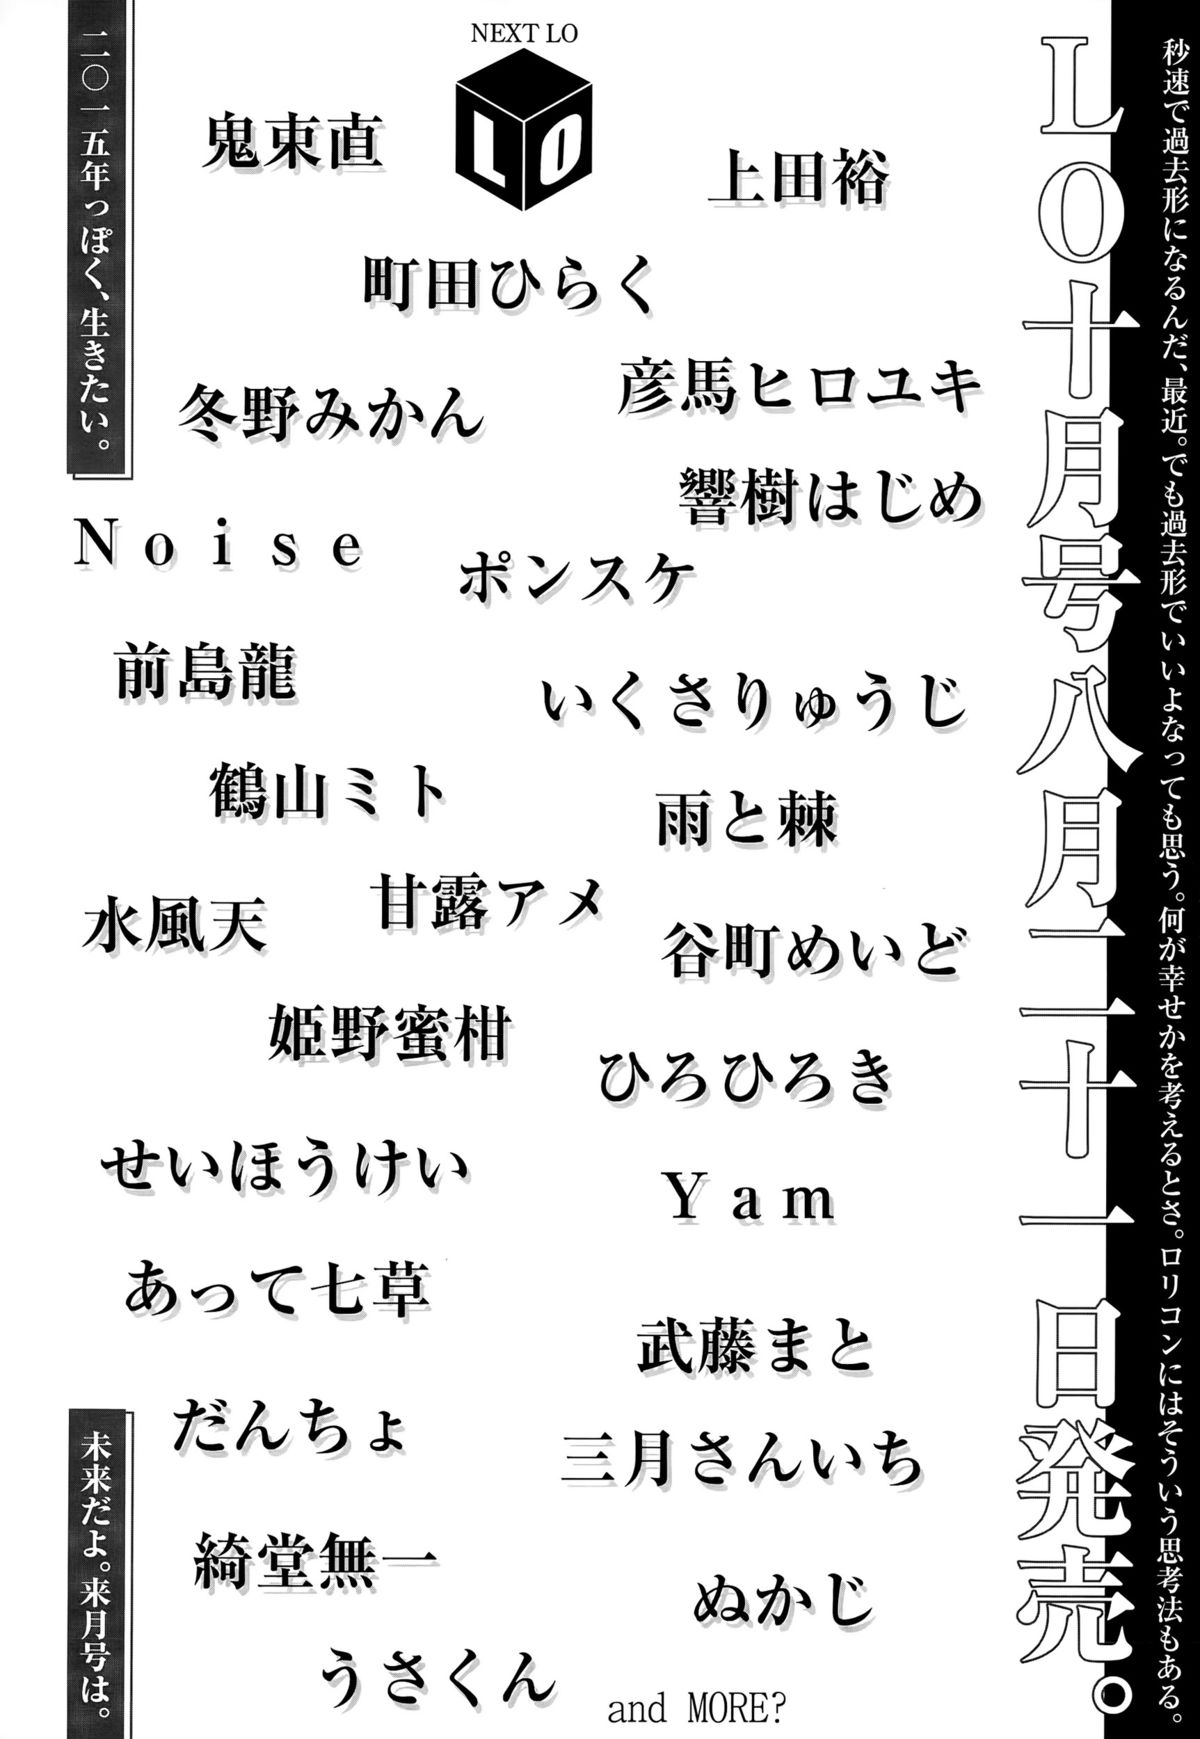 秒速で過去形になるんだ、最近。でも過去形でいいよなっても思う。何が幸せかを考えるとさ。ロリコンにはそういう思考法もある。
LO十月号八月二十一日発売。
NEXT LO
LO
鬼束直
上田裕
町田ひらく
彦馬ヒロユキ
冬野みかん
響樹はじめ
Noise
ポンスケ
前島龍
いくさりゅうじ
鶴山ミト
雨と棘
甘露アメ
水風天
谷町めいど
姫野蜜柑
ひろひろき
せいほうけい
Yam
あって七草
武藤まと
だんちょ
三月さんいち
綺堂無一
ぬかじ
うさくん
and MORE?
二〇一五年っぽく、生きたい。
未来だよ。来月号は。